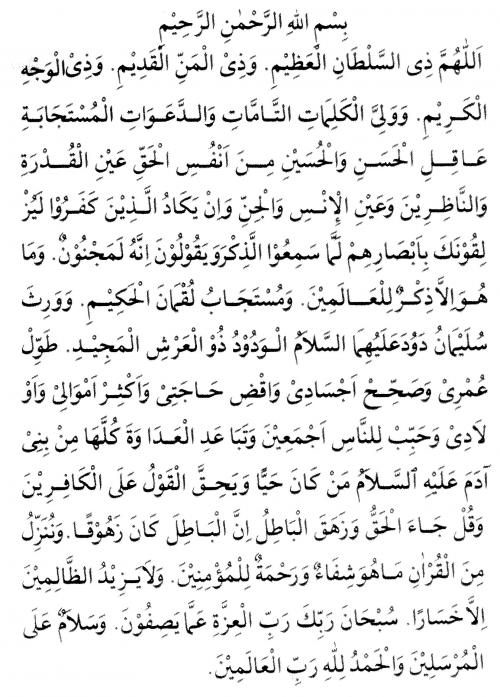 بِسْمِ اللهِ الرَّحْمٰنِ الرَّحِيْمِ
اَللّٰهُمَّ ذِى السُّلْطَانِ الْعَظِيْمِ. وَذِىْ الْمَنِّ الْقَدِيْمِ. وَذِىْ الْوَجْهِ
الْكَرِيْمِ. وَوَلِىَّ الْكَلِمَاتِ التَّامَّاتِ وَالدَّعَوَاتِ الْمُسْتَجَابَةِ
عَاقِلِ الْحَسَنِ وَالْحُسَيْنِ مِنْ اَنْفُسِ الْحَقِّ عَيْنِ الْقُدْرَةِ
وَالنَّاظِرِيْنَ وَعَيْنِ الْاِنْسِ وَالْجِنِّ وَاِنْ يَكَادُ الَّذِيْنَ كَفَرُوْا لَيُزْ
لِقُوْنَكَ بِاَبْصَارِهِمْ لَمَّا سَمِعُوْا الذِّكْرَ وَيَقُوْلُوْنَ اِنَّهُ لَمَجْنُوْنٌ. وَمَا
هُوَ اِلَّا ذِكْرٌ لِلْعَالَمِيْنَ. وَمُسْتَجَابُ لُقْمَانَ الْحَكِيْمِ. وَوَرِثَ
سُلَيْمَانُ دَوُدَ عَلَيْهِمَا السَّلَامُ الْوَدُوْدُ ذُو الْعَرْشِ الْمَجِيْدِ. طَوِّلْ
عُمْرِىْ وَصَحِّحْ اَجْسَادِىْ وَاقْضِ حَاجَتِىْ وَاَكْثِرْ اَمْوَالِىْ وَاَوْ
لَادِىْ وَحَبِّبْ لِلنَّاسِ اَجْمَعِيْنَ وَتَبَاعَدِ الْعَدَاوَةَ كُلَّهَا مِنْ بَنِىْ
آدَمَ عَلَيْهِ السَّلَامُ مَنْ كَانَ حَيًّا وَيَحِقَّ الْقَوْلُ عَلَى الْكَافِرِيْنَ
وَقُلْ جَاءَ الْحَقُّ وَزَهَقَ الْبَاطِلُ اِنَّ الْبَاطِلَ كَانَ زَهُوْقًا. وَنُنَزِّلُ
مِنَ الْقُرْاٰنِ مَا هُوَ شِفَاءٌ وَرَحْمَةٌ لِلْمُؤْمِنِيْنَ. وَلَا يَزِيْدُ الظَّالِمِيْنَ
اِلَّا خَسَارًا. سُبْحَانَ رَبِّكَ رَبِّ الْعِزَّةِ عَمَّا يَصِفُوْنَ. وَسَلَامٌ عَلَى
الْمُرْسَلِيْنَ وَالْحَمْدُ لِلّٰهِ رَبِّ الْعَالَمِيْنَ.